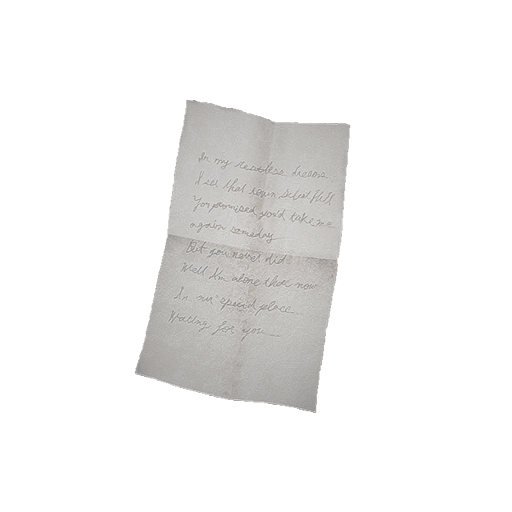 In my restless dreams
I see that town Silent Hill
You promised you'd take me
again someday
but you never did
Well I'm alone there now
In our special place
Waiting for you